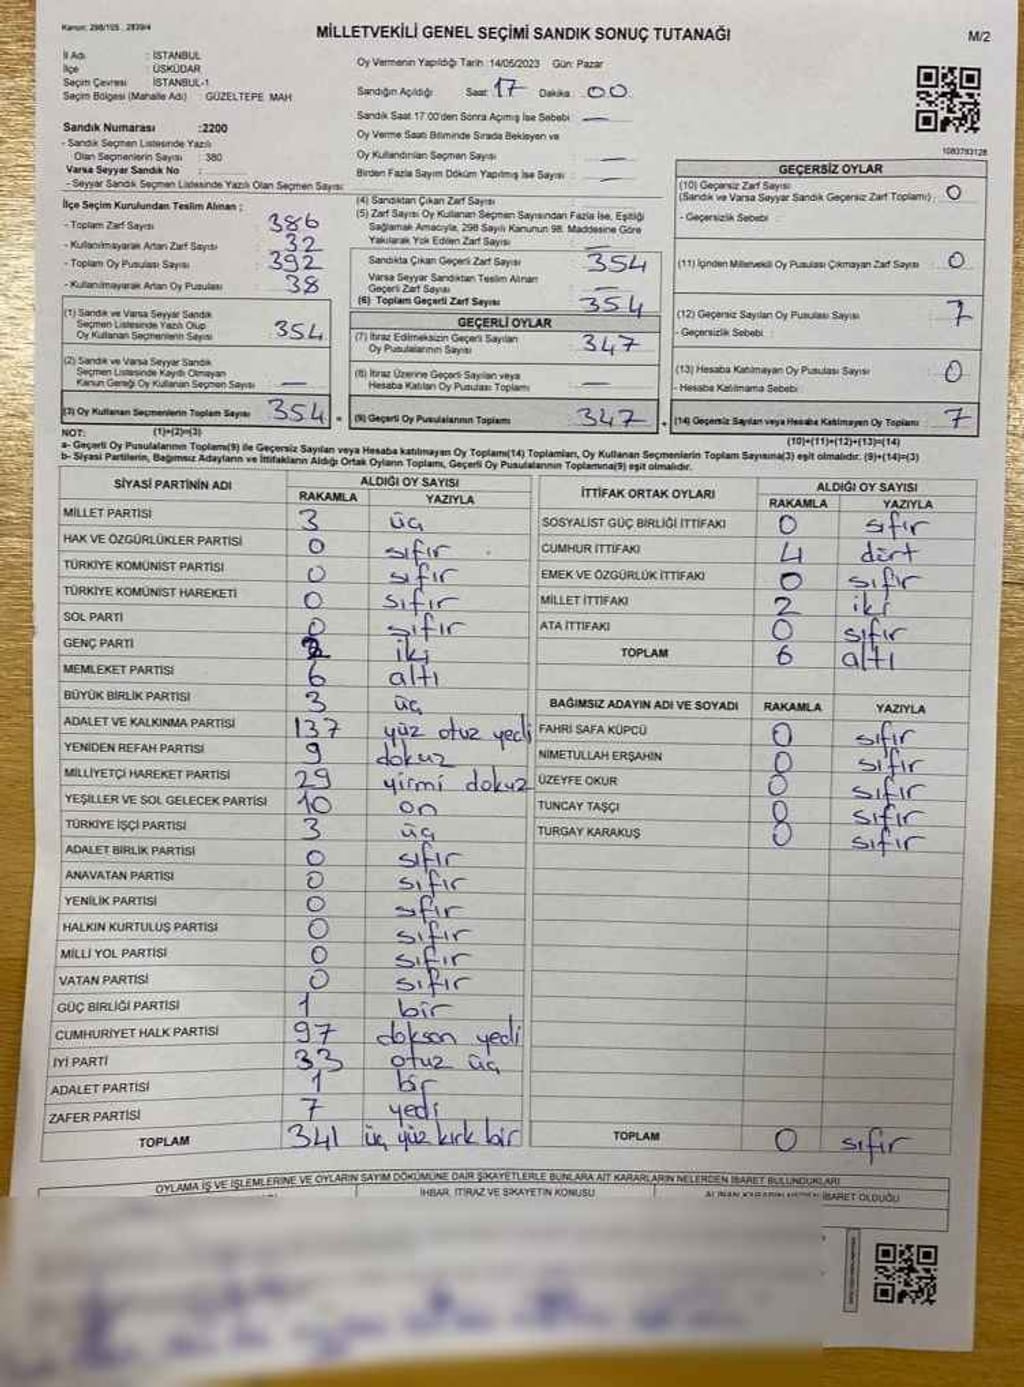 Kanun: 298/105 , 2839/4
MİLLETVEKİLİ GENEL SEÇİMİ SANDIK SONUÇ TUTANAĞI
M/2
İl Adı : İSTANBUL
İlçe : ÜSKÜDAR
Seçim Çevresi : İSTANBUL-1
Seçim Bölgesi (Mahalle Adı) : GÜZELTEPE MAH
Oy Vermenin Yapıldığı Tarih :14/05/2023 Gün: Pazar
Sandığın Açıldığı Saat: 17 Dakika : 00
Sandık Saat 17:00'den Sonra Açımış İse Sebebi : —
Oy Verme Saati Bitiminde Sırada Bekleyen ve
Oy Kullandırılan Seçmen Sayısı : —
Birden Fazla Sayım Döküm Yapılmış İse Sayısı : —
Sandık Numarası :2200
- Sandık Seçmen Listesinde Yazılı
Olan Seçmenlerin Sayısı : 380
Varsa Seyyar Sandık No :
- Seyyar Sandık Seçmen Listesinde Yazılı Olan Seçmen Sayısı:
1083783128
İlçe Seçim Kurulundan Teslim Alınan ;
- Toplam Zarf Sayısı : 386
- Kullanılmayarak Artan Zarf Sayısı : 32
- Toplam Oy Pusulası Sayısı : 392
- Kullanılmayarak Artan Oy Pusulası : 38
(1) Sandık ve Varsa Seyyar Sandık
Seçmen Listesinde Yazılı Olup
Oy Kullanan Seçmenlerin Sayısı : 354
(2) Sandık ve Varsa Seyyar Sandık
Seçmen Listesinde Kayıtlı Olmayan
Kanun Gereği Oy Kullanan Seçmen Sayısı : —
(3) Oy Kullanan Seçmenlerin Toplam Sayısı : 354 =
(4) Sandıktan Çıkan Zarf Sayısı :
(5) Zarf Sayısı Oy Kullanan Seçmen Sayısından Fazla İse, Eşitliği
Sağlamak Amacıyla, 298 Sayılı Kanunun 98. Maddesine Göre
Yakılarak Yok Edilen Zarf Sayısı : —
Sandıkta Çıkan Geçerli Zarf Sayısı : 354
Varsa Seyyar Sandıktan Teslim Alınan
Geçerli Zarf Sayısı : —
(6) Toplam Geçerli Zarf Sayısı : 354
GEÇERLİ OYLAR
(7) İtiraz Edilmeksizin Geçerli Sayılan
Oy Pusulalarının Sayısı : 347
(8) İtiraz Üzerine Geçerli Sayılan veya
Hesaba Katılan Oy Pusulaları Toplamı : —
(9) Geçerli Oy Pusulalarının Toplamı : 347 +
GEÇERSİZ OYLAR
(10) Geçersiz Zarf Sayısı
(Sandık ve Varsa Seyyar Sandık Geçersiz Zarf Toplamı) : 0
- Geçersizlik Sebebi :
(11) İçinden Milletvekili Oy Pusulası Çıkmayan Zarf Sayısı : 0
(12) Geçersiz Sayılan Oy Pusulası Sayısı : 7
- Geçersizlik Sebebi :
(13) Hesaba Katılmayan Oy Pusulası Sayısı : 0
- Hesaba Katılmama Sebebi :
(14) Geçersiz Sayılan veya Hesaba Katılmayan Oy Toplamı : 7
NOT: (1)+(2)=(3) (10)+(11)+(12)+(13)=(14)
a- Geçerli Oy Pusulalarının Toplamı(9) ile Geçersiz Sayılan veya Hesaba katılmayan Oy Toplamı(14) Toplamları, Oy Kullanan Seçmenlerin Toplam Sayısına(3) eşit olmalıdır. (9)+(14)=(3)
b- Siyasi Partilerin, Bağımsız Adayların ve İttifakların Aldığı Ortak Oyların Toplamı, Geçerli Oy Pusulalarının Toplamına(9) eşit olmalıdır.
SİYASİ PARTİNİN ADI ALDIĞI OY SAYISI
RAKAMLA YAZIYLA
MİLLET PARTİSİ 3 üç
HAK VE ÖZGÜRLÜKLER PARTİSİ 0 sıfır
TÜRKİYE KOMÜNİST PARTİSİ 0 sıfır
TÜRKİYE KOMÜNİST HAREKETİ 0 sıfır
SOL PARTİ 0 sıfır
GENÇ PARTİ 2 iki
MEMLEKET PARTİSİ 6 altı
BÜYÜK BİRLİK PARTİSİ 3 üç
ADALET VE KALKINMA PARTİSİ 137 yüz otuz yedi
YENİDEN REFAH PARTİSİ 9 dokuz
MİLLİYETÇİ HAREKET PARTİSİ 29 yirmi dokuz
YEŞİLLER VE SOL GELECEK PARTİSİ 10 on
TÜRKİYE İŞÇİ PARTİSİ 3 üç
ADALET BİRLİK PARTİSİ 0 sıfır
ANAVATAN PARTİSİ 0 sıfır
YENİLİK PARTİSİ 0 sıfır
HALKIN KURTULUŞ PARTİSİ 0 sıfır
MİLLİ YOL PARTİSİ 0 sıfır
VATAN PARTİSİ 0 sıfır
GÜÇ BİRLİĞİ PARTİSİ 1 bir
CUMHURİYET HALK PARTİSİ 97 doksan yedi
İYİ PARTİ 33 otuz üç
ADALET PARTİSİ 1 bir
ZAFER PARTİSİ 7 yedi
TOPLAM 341 üç yüz kırk bir
İTTİFAK ORTAK OYLARI ALDIĞI OY SAYISI
RAKAMLA YAZIYLA
SOSYALİST GÜÇ BİRLİĞİ İTTİFAKI 0 sıfır
CUMHUR İTTİFAKI 4 dört
EMEK VE ÖZGÜRLÜK İTTİFAKI 0 sıfır
MİLLET İTTİFAKI 2 iki
ATA İTTİFAKI 0 sıfır
TOPLAM 6 altı
BAĞIMSIZ ADAYIN ADI VE SOYADI RAKAMLA YAZIYLA
FAHRİ SAFA KÜPCÜ 0 sıfır
NİMETULLAH ERŞAHİN 0 sıfır
ÜZEYFE OKUR 0 sıfır
TUNCAY TAŞÇI 0 sıfır
TURGAY KARAKUŞ 0 sıfır
TOPLAM 0 sıfır
OYLAMA İŞ VE İŞLEMLERİNE VE OYLARIN SAYIM DÖKÜMÜNE DAİR ŞİKAYETLERLE BUNLARA AİT KARARLARIN NELERDEN İBARET BULUNDUKLARI
İHBAR, İTİRAZ VE ŞİKAYETİN KONUSU
İBARET OLDUĞU